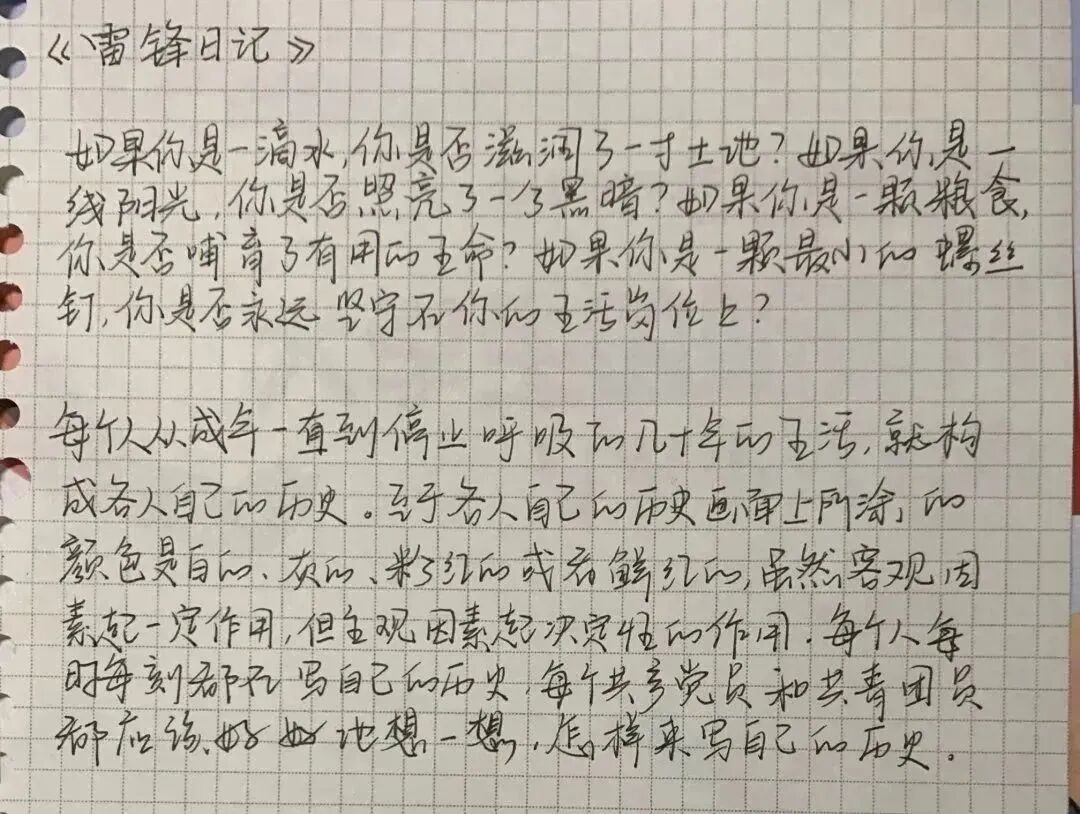 《雷锋日记》
如果你是一滴水,你是否滋润了一寸土地?如果你是一
线阳光,你是否照亮了一分黑暗?如果你是一颗粮食,
你是否哺育了有用的生命?如果你是一颗最小的螺丝
钉,你是否永远坚守在你的生活岗位上?
每个人从成年一直到停止呼吸的几十年的生活,就构
成各人自己的历史。至于各人自己的历史画面上所涂的
颜色是白的、灰的、粉红的或者鲜红的,虽然客观因
素起一定作用,但主观因素起决定性的作用。每个人每
时每刻都在写自己的历史,每个共产党员和共青团员
都应该好好地想一想,怎样来写自己的历史。